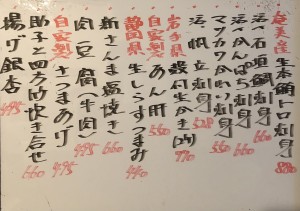 奄美産 生本鮪トロ刺身 880
活〆石鯛刺身 660
活〆かんぱち刺身 660
マツカワかれい刺身 660
活〆帆立刺身 528
岩手県 殻付生かき(2ヶ) 770
自家製 あん肝 550
静岡県 生しらすつまみ 440
新さんま塩焼き 660
肉豆腐(牛肉) 495
自家製 さつまあげ 495
助子と四方竹炊き合せ 660
揚げ銀杏 495